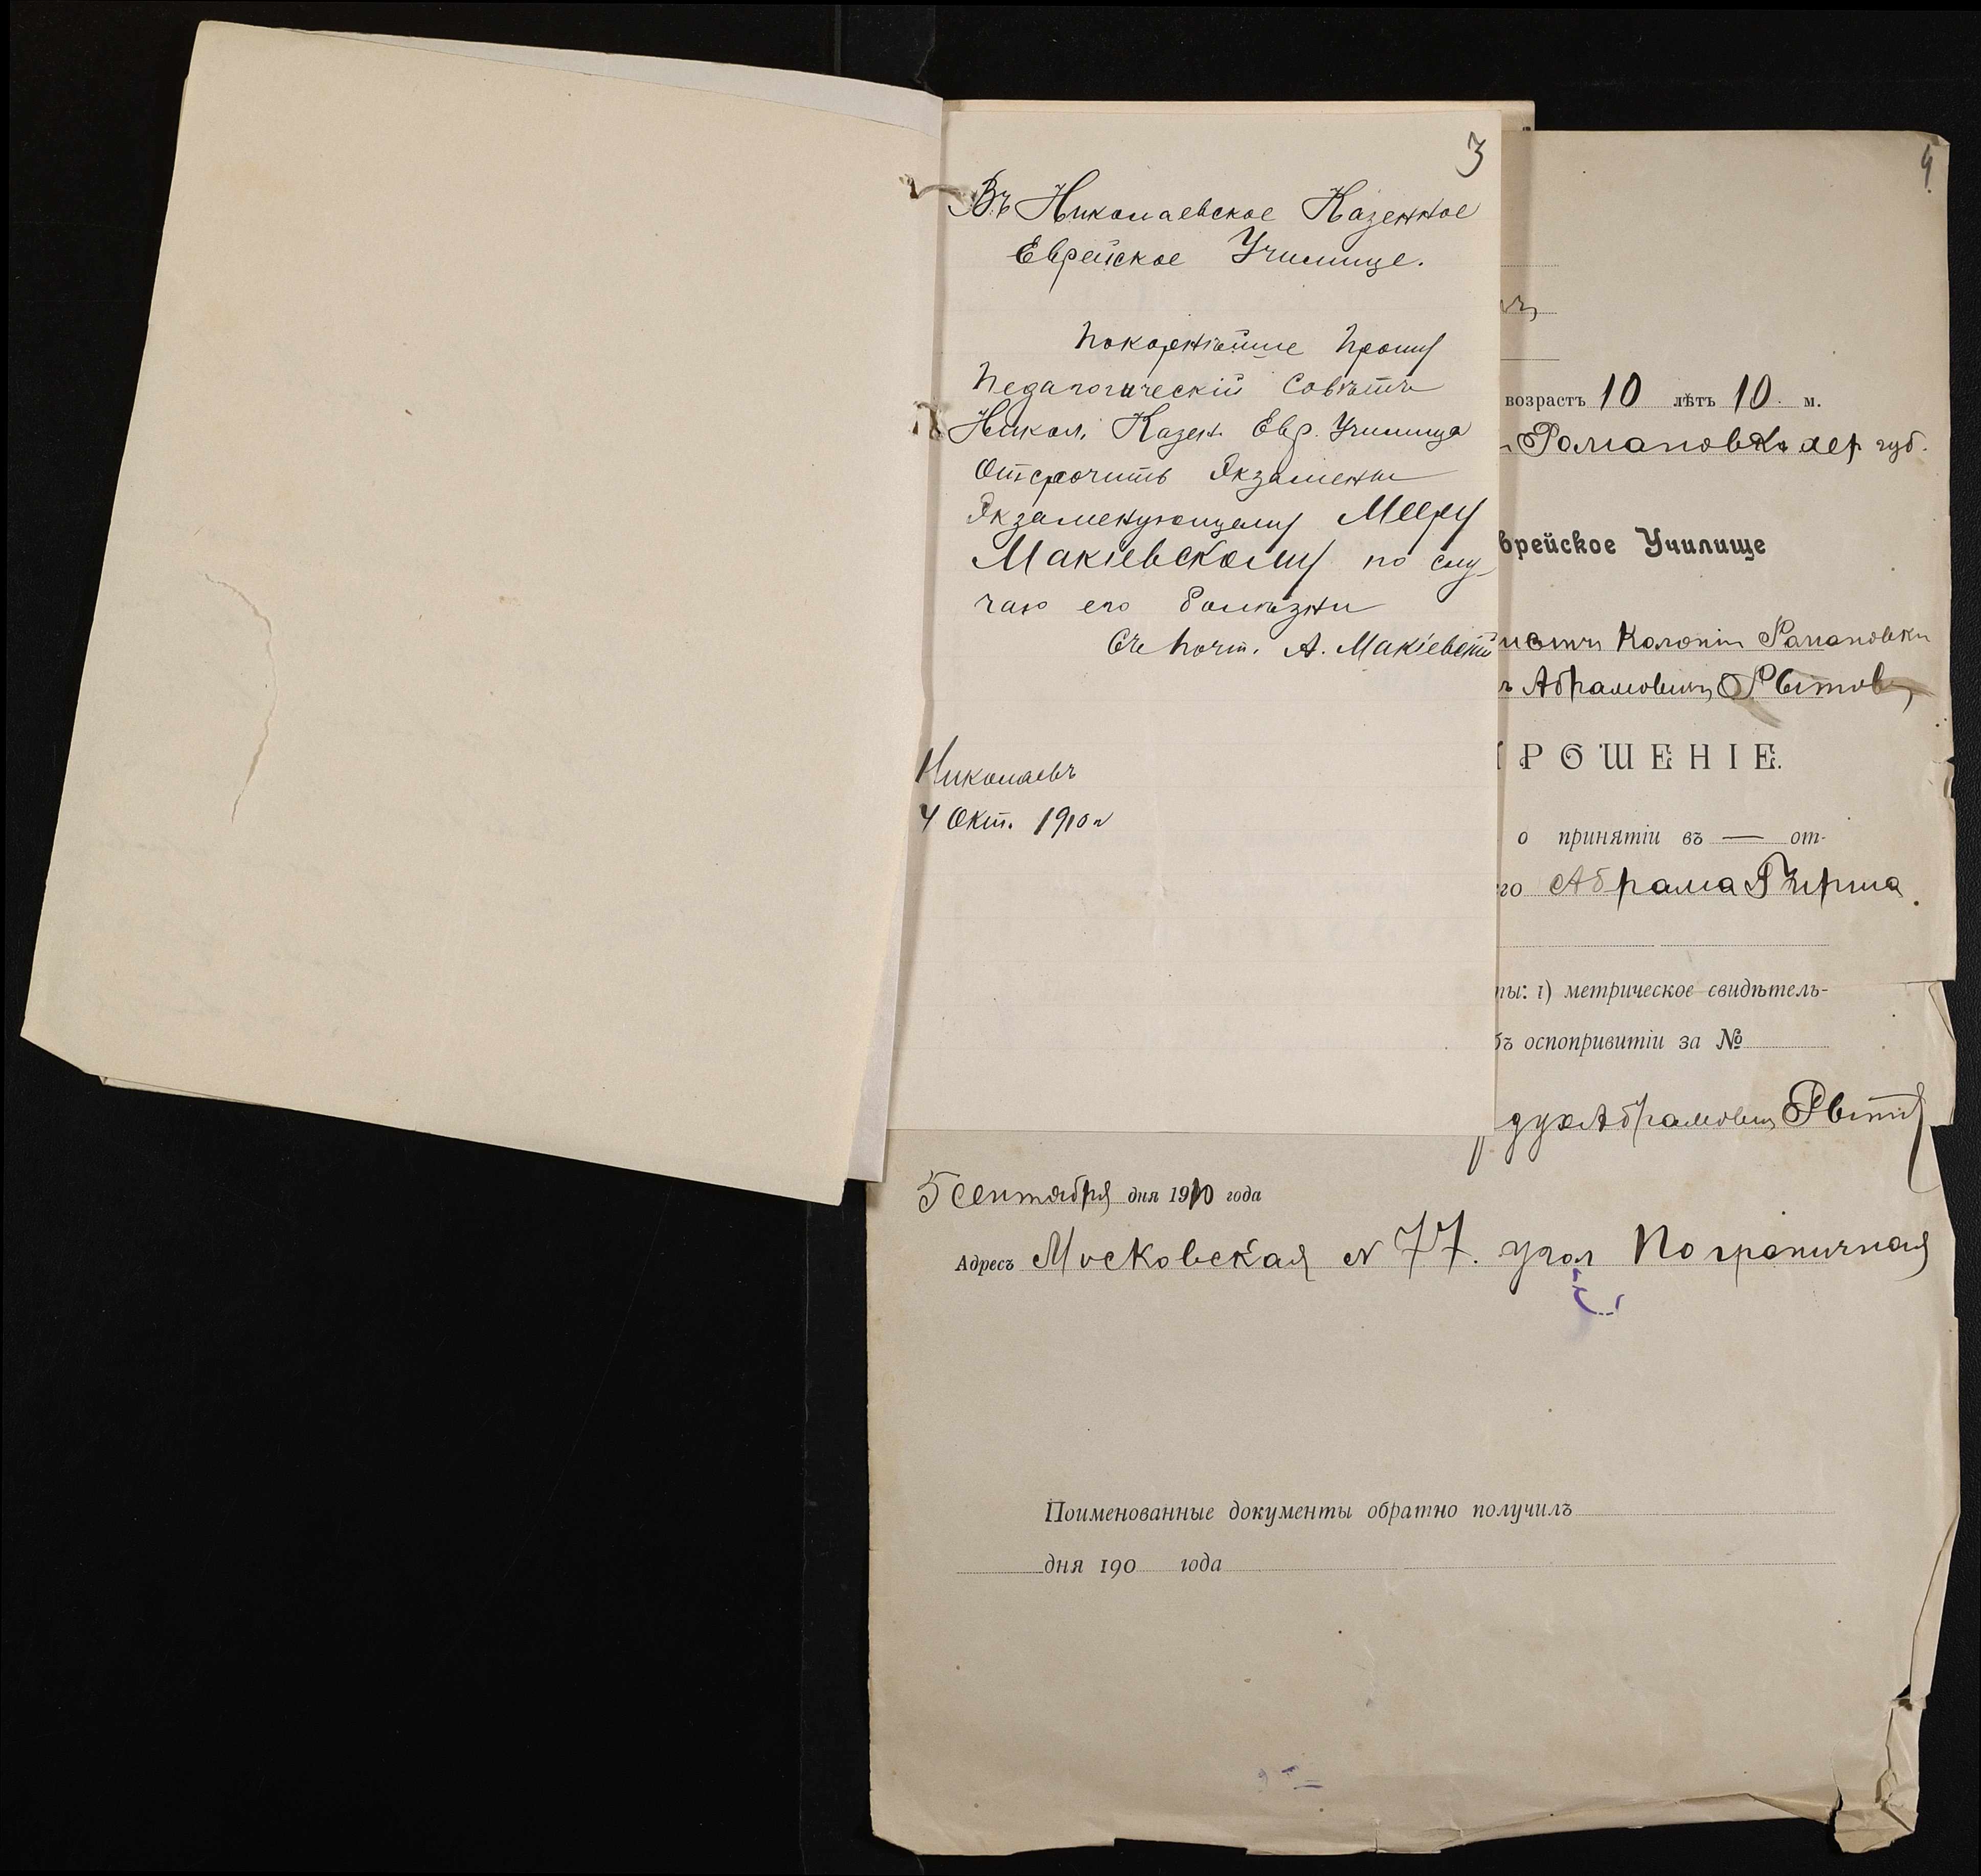 3
Въ Николаевское Казенное
Еврейское Училище.
Покорнѣйше прошу
Педагогическій Совѣтъ
Никол. Казен. Евр. Училища
Отсрочить Экзамены
Экзаменующему Мееру
Макіевскому по слу-
чаю его болѣзни
Съ почт. А. Макіевскій
Николаевъ
4 Окт. 1910 г
4
возрастъ 10 лѣтъ 10. м.
Романовка Хер. губ.
врейское Училище
Колоніи Романовки
Абрамовичъ
РОШЕНІЕ.
о принятіи въ — от-
го Абрама Гирша.
ты: 1) метрическое свидѣтель-
бъ оспопривитіи за №
дух Абрамовичъ
5 Сентября дня 1910 года
Адресъ Московская N 77. угол Пограничная
Поименованные документы обратно получилъ
дня 190 года